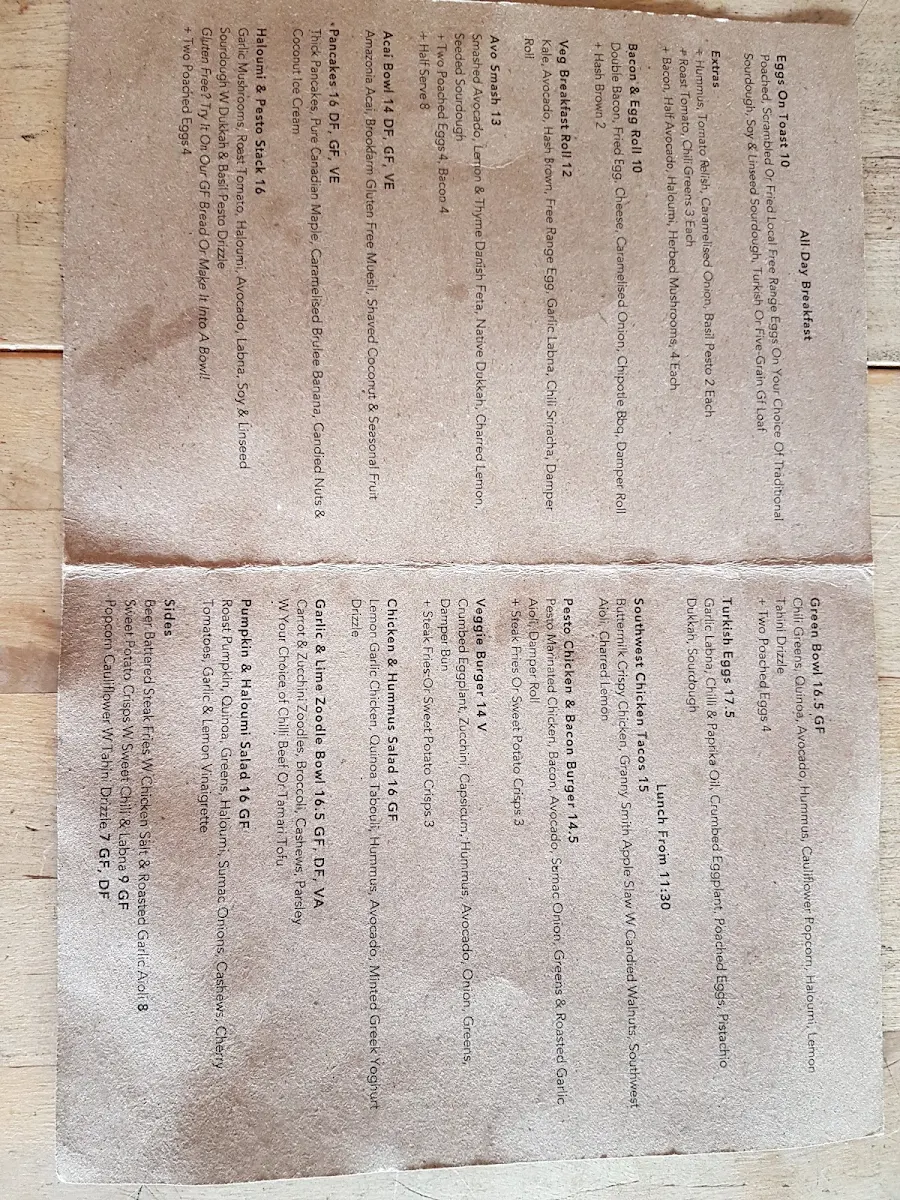 All Day Breakfast
Eggs On Toast 10
Poached, Scrambled Or Fried Local Free Range Eggs On Your Choice Of Traditional
Sourdough, Soy & Linseed Sourdough, Turkish Or Five-Grain Gf Loaf
Extras
+ Hummus, Tomato Relish, Caramelised Onion, Basil Pesto 2 Each
+ Roast Tomato, Chili Greens 3 Each
+ Bacon, Half Avocado, Haloumi, Herbed Mushrooms, 4 Each
Bacon & Egg Roll 10
Double Bacon, Fried Egg, Cheese, Caramelised Onion, Chipotle Bbq, Damper Roll
+ Hash Brown 2
Veg Breakfast Roll 12
Kale, Avocado, Hash Brown, Free Range Egg, Garlic Labna, Chili Sriracha, Damper
Roll
Avo Smash 13
Smashed Avocado, Lemon & Thyme Danish Feta, Native Dukkah, Charred Lemon,
Seeded Sourdough
+ Two Poached Eggs 4, Bacon 4
+ Half Serve 8
Acai Bowl 14 DF, GF, VE
Amazonia Acai, Brookfarm Gluten Free Muesli, Shaved Coconut & Seasonal Fruit
*Pancakes 16 DF, GF, VE
Thick Pancakes, Pure Canadian Maple, Caramelised Brulee Banana, Candied Nuts &
Coconut Ice Cream
Haloumi & Pesto Stack 16
Garlic Mushrooms, Roast Tomato, Haloumi, Avocado, Labna, Soy & Linseed
Sourdough W Dukkah & Basil Pesto Drizzle
Gluten Free? Try It On Our GF Bread Or Make It Into A Bowl!
+ Two Poached Eggs 4
Green Bowl 16.5 GF
Chili Greens, Quinoa, Avocado, Hummus, Cauliflower Popcorn, Haloumi, Lemon
Tahini Drizzle
+ Two Poached Eggs 4
Turkish Eggs 17.5
Garlic Labna, Chilli & Paprika Oil, Crumbed Eggplant, Poached Eggs, Pistachio
Dukkah, Sourdough
Lunch From 11:30
Southwest Chicken Tacos 15
Buttermilk Crispy Chicken, Granny Smith Apple Slaw W Candied Walnuts, Southwest
Aioli, Charred Lemon
Pesto Chicken & Bacon Burger 14.5
Pesto Marinated Chicken, Bacon, Avocado, Sumac Onion, Greens & Roasted Garlic
Aioli, Damper Roll
+ Steak Fries Or Sweet Potato Crisps 3
Veggie Burger 14 V
Crumbed Eggplant, Zucchini, Capsicum, Hummus, Avocado, Onion, Greens,
Damper Bun
+ Steak Fries Or Sweet Potato Crisps 3
Chicken & Hummus Salad 16 GF
Lemon Garlic Chicken, Quinoa Tabouli, Hummus, Avocado, Minted Greek Yoghurt
Drizzle
Garlic & Lime Zoodle Bowl 16.5 GF, DF, VA
Carrot & Zucchini Zoodles, Broccoli, Cashews, Parsley
W Your Choice of Chilli Beef Or Tamari Tofu
Pumpkin & Haloumi Salad 16 GF
Roast Pumpkin, Quinoa, Greens, Haloumi, Sumac Onions, Cashews, Cherry
Tomatoes, Garlic & Lemon Vinaigrette
Sides
Beer Battered Steak Fries W Chicken Salt & Roasted Garlic Aioli 8
Sweet Potato Crisps W Sweet Chili & Labna 9 GF
Popcorn Cauliflower W Tahini Drizzle 7 GF, DF